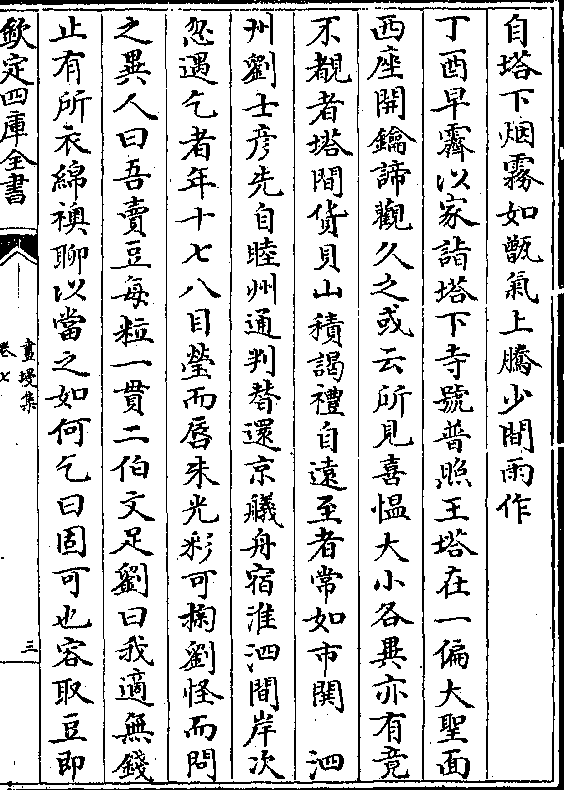 自塔下烟霧如甑氣上騰少間雨作
丁酉早霽以家詣塔下寺號普照王塔在一偏大聖面
西座開鑰諦觀久之或云所見喜愠大小各異亦有竟
不覩者塔間貨貝山積謁禮自遠至者常如市閧　泗
州劉士彦先自睦州通判替還京艤舟宿淮泗間岸次
忽遇乞者年十七八目瑩而唇朱光彩可掬劉怪而問
之異人曰吾賣豆每粒一貫二伯文足劉曰我適無錢
止有所衣綿襖聊以當之如何乞曰固可也容取豆即
欽定四庫全書
畫墁集
卷七
三